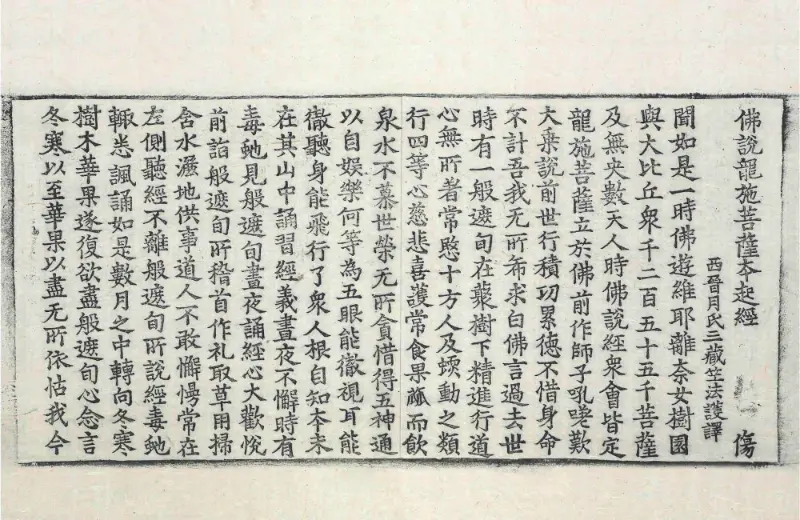 佛說龍施菩薩夲起經 傷
西晉月氏三藏竺法護譯
聞如是一時佛遊維耶離奈女樹園
與大比丘衆千二百五十五千菩薩
及無央數天人時佛說經衆會皆定
龍施菩薩立於佛前作師子吼嗟歎
大乗說前世行積功累德不惜身命
不計吾我无所希求白佛言過去世
時有一般遮旬在藂樹下精進行道
心無所著常愍十方人及蝡動之類
行四等心慈悲喜護常食果蓏而飲
泉水不慕世榮无所貪惜得五神通
以自娛樂何等為五眼能徹視耳能
徹聽身能飛行了衆人根自知夲末
在其山中誦習經義晝夜不懈時有
毒虵見般遮旬晝夜誦經心大歡悅
前詣般遮旬所稽首作礼取草用掃
含水灑地供事道人不敢懈慢常在
左側聽經不離般遮旬所說經毒虵
輙悉諷誦如是數月之中轉向冬寒
樹木華果遂復欲盡般遮旬心念言
冬寒以至華果以盡无所依怙我今